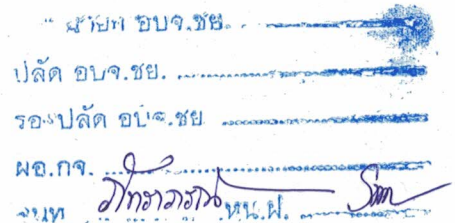 นายก อบจ.ชย.
ปลัด อบจ.ชย.
รองปลัด อบจ.ชย
ผอ.กจ.
จนท หน.ฝ.